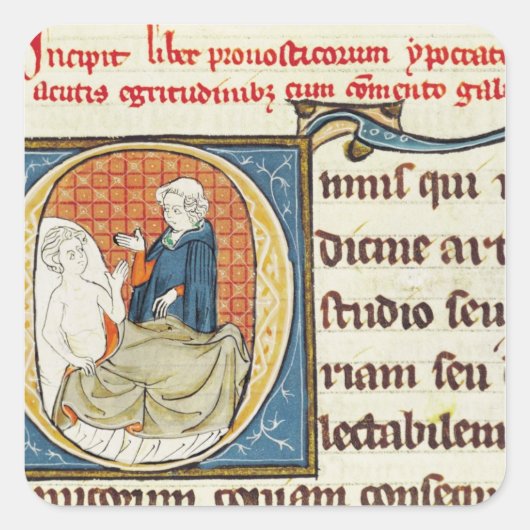 Incipit liber pronosticorum ypocrat
acutis egritudinibz cum comento gal
O
mnis qui
dicine art
studio seu
riam seu
lectabilem
micorum copiam consecu